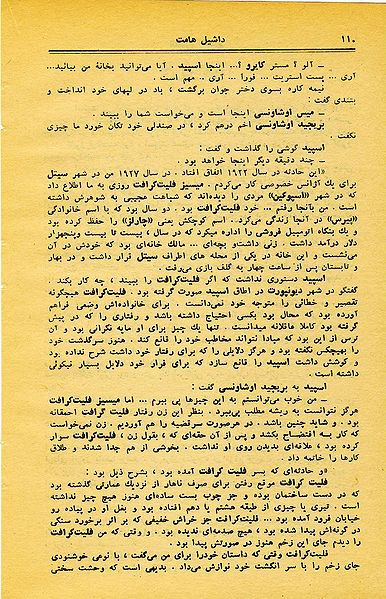 ۱۱۰ داشیل هامت
ــ الو آ مستر کایرو آ... اینجا اسپید . آیا می‌توانید بخانهٔ من بیائید...
آری ... پست استریت ... فورا ... آری .. مهم است .
نیمه کاره بسوی دختر جوان برگشت ، باد در لپهای خود انداخت و
بتندی گفت :
ــ میس اوشاونسی اینجا است و می‌خواست شما را ببیند .
بریجید اوشاونسی اخم درهم کرد ، در صندلی خود تکان خورد ما چیزی
نگفت .
اسپید گوشی را گذاشت و گفت :
ــ چند دقیقه دیگر اینجا خواهد بود .
«این حادثه در سال ۱۹۲۲ اتفاق افتاد . در سال ۱۹۲۷ من در شهر سیتل
برای یك آژانس خصوصی کار می‌کردم . میسیز فلیت‌کرافت روزی به ما اطلاع داد
که در شهر «اسپوکین» مردی را دیده‌اند که شباهت عجیبی به شوهرش داشته
است . من بآنجا رفتم ... خود فلیت‌کرافت بود . دو سال بود که با اسم خانوادگی
«پیرس» در آنجا زندگی می‌کرد. اسم کوچکش یعنی «چارلز» را حفظ کرده بود
و یك بنگاه اتومبیل فروشی را اداره میکرد که در سال ، بیست تا بیست وپنجهزار
دلار درآمد داشت . زنی داشت‌و بچه‌ای... مالك خانه‌ای بود که خودش در آن
می‌نشست و این خانه در یکی از محله های اطراف سیتل قرار داشت و در بهار
و تابستان پس از ساعت چهار به گلف بازی می‌رفت .
اسپید دستوری نداشت که اگر فلیت‌کرافت را ببیند ، چه کار بکند .
گفتگو در شهر دیونپورت در اطاق اسپید صورت گرفته بود . فلیت‌کرافت هیچگونه
تقصیر و خطائی را متوجه خود نمی‌دانست . برای خانواده‌اش وضعی فراهم
آورده بود که محال بود بکسی احتیاج داشته باشد و رفتاری را که در پیش
گرفته بود کاملا عاقلانه میدانست . تنها یك چیز برای او مایه نگرانی بود و آن
ترس از این بود که مبادا نتواند مخاطب خود را قانع کند . هنوز سرگذشت خود
را بهیچکس نگفته بود و هرگز دلایلی را که برای رفتار خود داشت شرح نداده بود
و کوشش داشت اسپید را قانع سازد که برای فرار خود دلایل بسیار نیکوئی
داشته است .
اسپید به بریجید اوشاونسی گفت :
ــ من خوب می‌توانستم به این چیزها پی ببرم ... اما میسیز فلیت‌کرافت
هرگز نتوانست به ریشه مطلب پی‌ببرد . بنظر این زن رفتار فلیت کرافت احمقانه
بود . و شاید چنین باشد . در هرصورت سرقضیه را هم آوردیم . زن نمی‌خواست
که کار به افتضاح بکشد و پس از آن حقه‌ای که ، بقول زن ، فلیت‌کرافت سوار
کرده بود ، علاقه‌ای بدیدن روی او نداشت . بخوشی از هم جدا شدند و طلاق
کارها را خاتمه داد .
«و حادثه‌ای که بسر فلیت کرافت آمده بود ، بشرح ذیل بود :
فلیت کرافت موقع رفتن برای صرف ناهار از نزدیك عمارتی گذشته بود
که در دست ساختمان بوده و جز چوب بست ساده‌ای هنوز هیچ چیز نداشته
است . تیری یا چیزی از طبقه هشتم یا دهم افتاده بود و بغل او در پیاده رو
خیابان فرود آمده بود ... فلیت‌کرافت جز خراش خفیفی که بر اثر برخورد سنگی
در گونه‌اش پیدا شده بود ، هیچ صدمه‌ای ندیده بود . و وقتی که من فلیت‌کرافت
را دیدم جای این زخم هنوز در صورتش پیدا بود .
فلیت‌کرافت وقتی که داستان خودرا برای من می‌گفت ، با نوعی خوشنودی
جای زخم را با سر انگشت خود نوازش می‌داد . بدیهی است که وحشت سختی